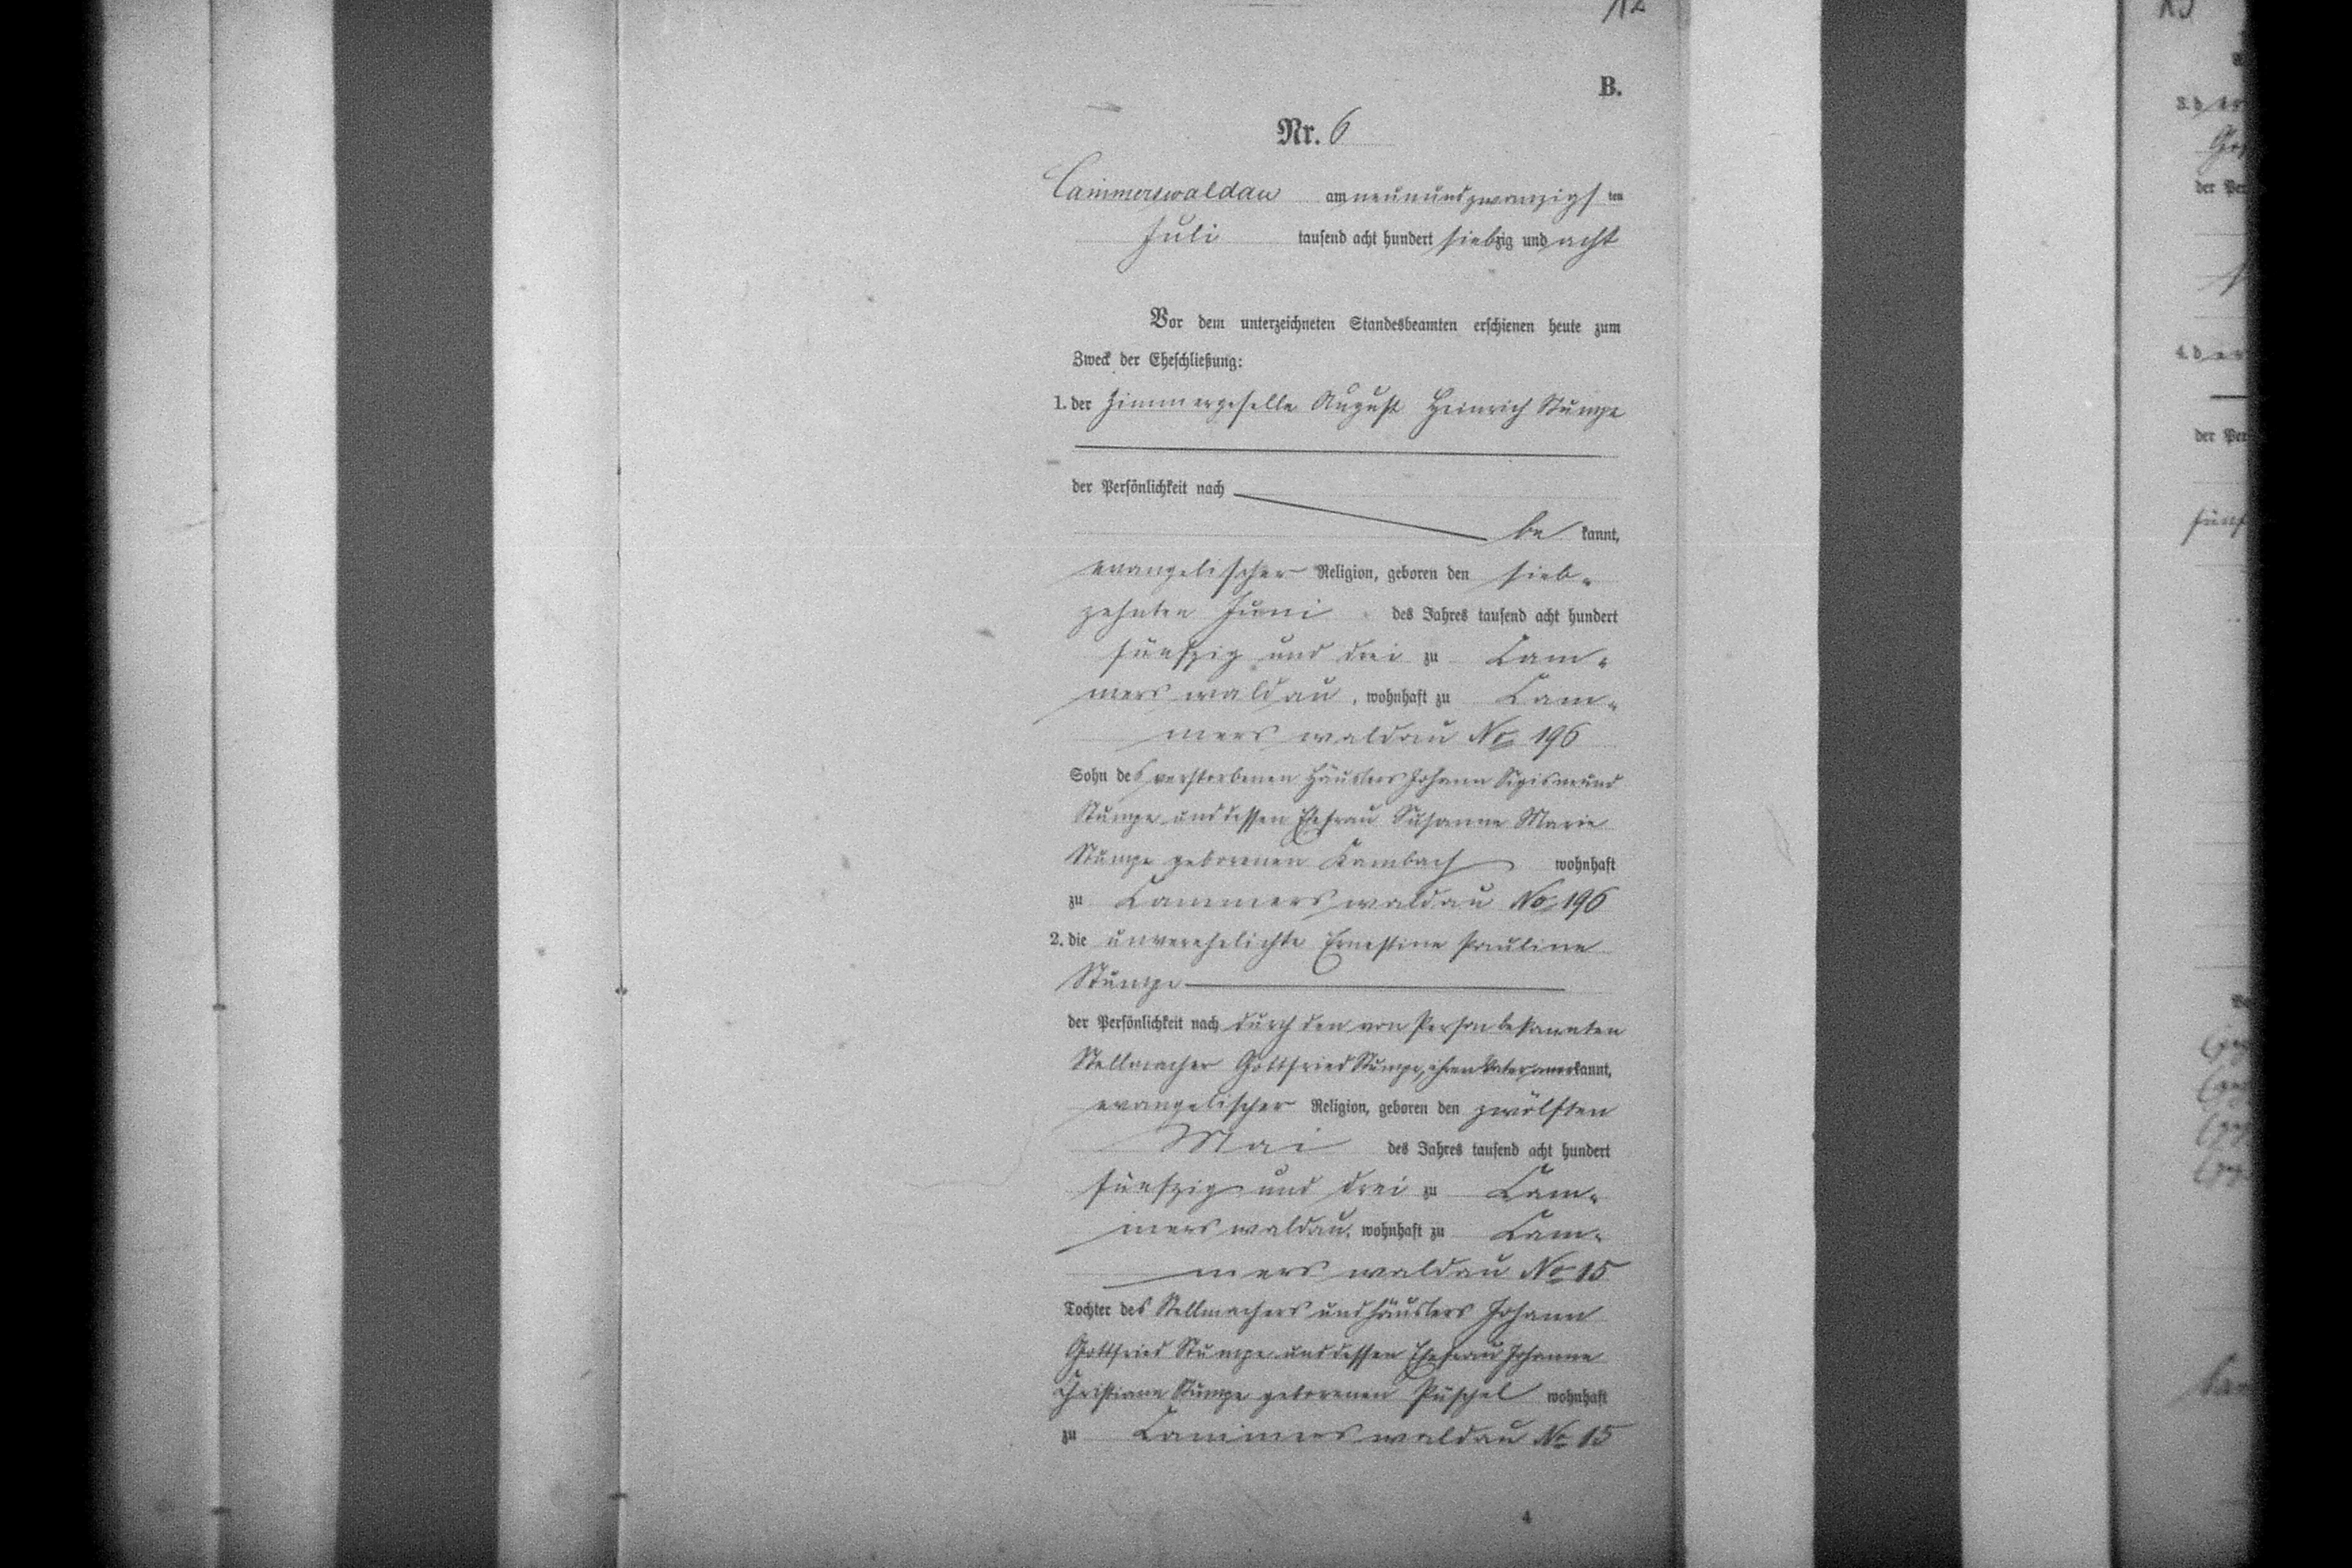 12
B.
Nr. 6
Cammerswaldau am neunundzwanzigsten
Juli tausend acht hundert siebzig und acht
Vor dem unterzeichneten Standesbeamten erschienen heute zum
Zweck der Eheschließung:
1. der Zimmergeselle August Heinrich Stumpe
der Persönlichkeit nach
be kannt,
evangelischer Religion, geboren den sieb-
zehnten Juni des Jahres tausend acht hundert
fünfzig und drei zu Cam-
merswaldau, wohnhaft zu Cam-
merswaldau No 196
Sohn des verstorbenen Häuslers Johann Sigismund
Stumpe und dessen Ehefrau Susanne Marie
Stumpe geborenen Kambach wohnhaft
zu Cammerswaldau No 196
2. die unverehelichte Ernestine Pauline
Stumpe
der Persönlichkeit nach durch den von Person bekannten
Stellmacher Gottfried Stumpe, ihren Vater, anerkannt,
evangelischer Religion, geboren den zwölften
Mai des Jahres tausend acht hundert
fünfzig und drei zu Cam-
merswaldau, wohnhaft zu Cam-
merswaldau No 15
Tochter des Stellmachers und Häuslers Johann
Gottfried Stumpe und dessen Ehefrau Johanne
Christiane Stumpe geborenen Püschel wohnhaft
zu Cammerswaldau No 15
4
3. d
der
4. d
der